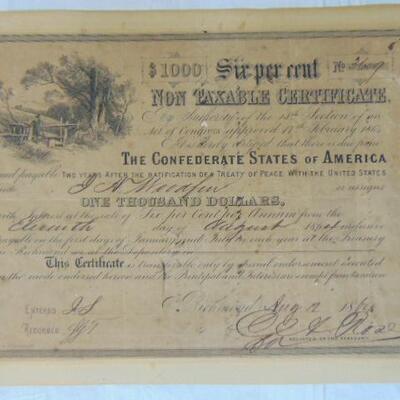 $1000 Six per cent No
NON TAXABLE CERTIFICATE.
By Authority of the 13th Section of an
Act of Congress approved 17th February 1864
there is due from
THE CONFEDERATE STATES OF AMERICA
and payable TWO YEARS AFTER THE RATIFICATION OF A TREATY OF PEACE WITH THE UNITED STATES
or assigns
ONE THOUSAND DOLLARS,
with Interest at the rate of Six per Cent per Annum from the
day of August 1864 inclusive
payable on the first days of January and July in each year at the Treasury
in Richmond or at the Depository in
This Certificate is transferable only by special endorsement executed
in the mode endorsed hereon and the Principal and Interest are exempt from taxation
Richmond, Aug 12 1864
ENTERED
RECORDED
REGISTER OF THE TREASURY